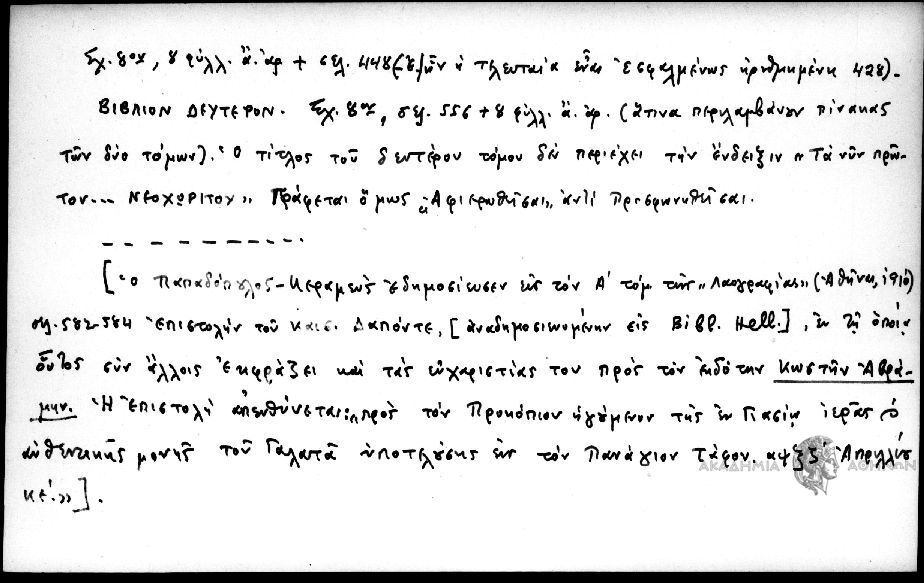 Σχ. 8ον, 8 φύλλ. ἄ. ἀρ + σελ. 448 (ὧν ἡ τελευταία εἶναι ἐσφαλμένως ἠριθμημένη 428).
ΒΙΒΛΙΟΝ ΔΕΥΤΕΡΟΝ. Σχ. 8ον, σελ. 556 + 8 φύλλ. ἄ. ἀρ. (ἅτινα περιλαμβάνουν πίνακας
τῶν δύο τόμων). Ὁ τίτλος τοῦ δευτέρου τόμου δὲν περιέχει τὴν ἔνδειξιν «Τὰ νῦν πρῶ-
τον... ΝΕΟΧΩΡΙΤΟΥ» Γράφεται ὅμως «Ἀφιερωθεῖσαι» ἀντὶ Προσφωνηθεῖσαι.
[Ὁ Παπαδόπουλος-Κεραμεὺς ἐδημοσίευσεν εἰς τὸν Α' τόμ τῆς «Λαογραφίας» (Ἀθῆναι, 1910)
σελ. 582-584 ἐπιστολὴν τοῦ Καισ. Δαπόντε, [ἀναδημοσιευομένην εἰς Bibl. Hell.], ἐν τῇ ὁποίᾳ
οὗτος σὺν ἄλλοις ἐκφράζει καὶ τὰς εὐχαριστίας του πρὸς τὸν ἐκδότην Κωστῆν Ἀβρά-
μην. Ἡ ἐπιστολὴ ἀπευθύνεται «πρὸς τὸν Προκόπιον ἡγούμενον τῆς ἐν Γιασίῳ ἱερᾶς
αὐθεντικῆς μονῆς τοῦ Γαλατᾶ ὑποτελούσης εἰς τὸν Πανάγιον Τάφον. αψξξ Ἀπριλλίου
κε'.»].
ΑΚΑΔΗΜΙΑ ΑΘΗΝΩΝ